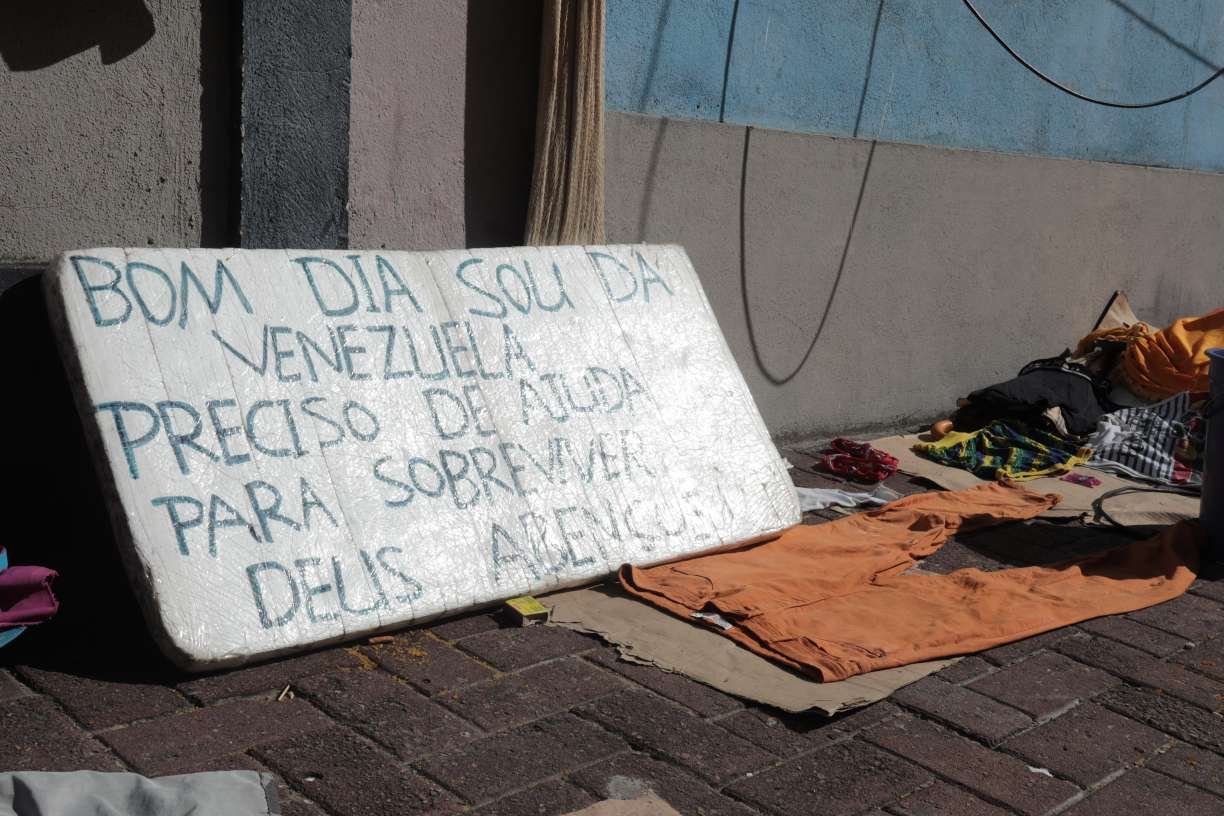 BOM DIA SOU DA
VENEZUELA
PRECISO DE AJUDA
PARA SOBREVIVER
DEUS ABENÇOI